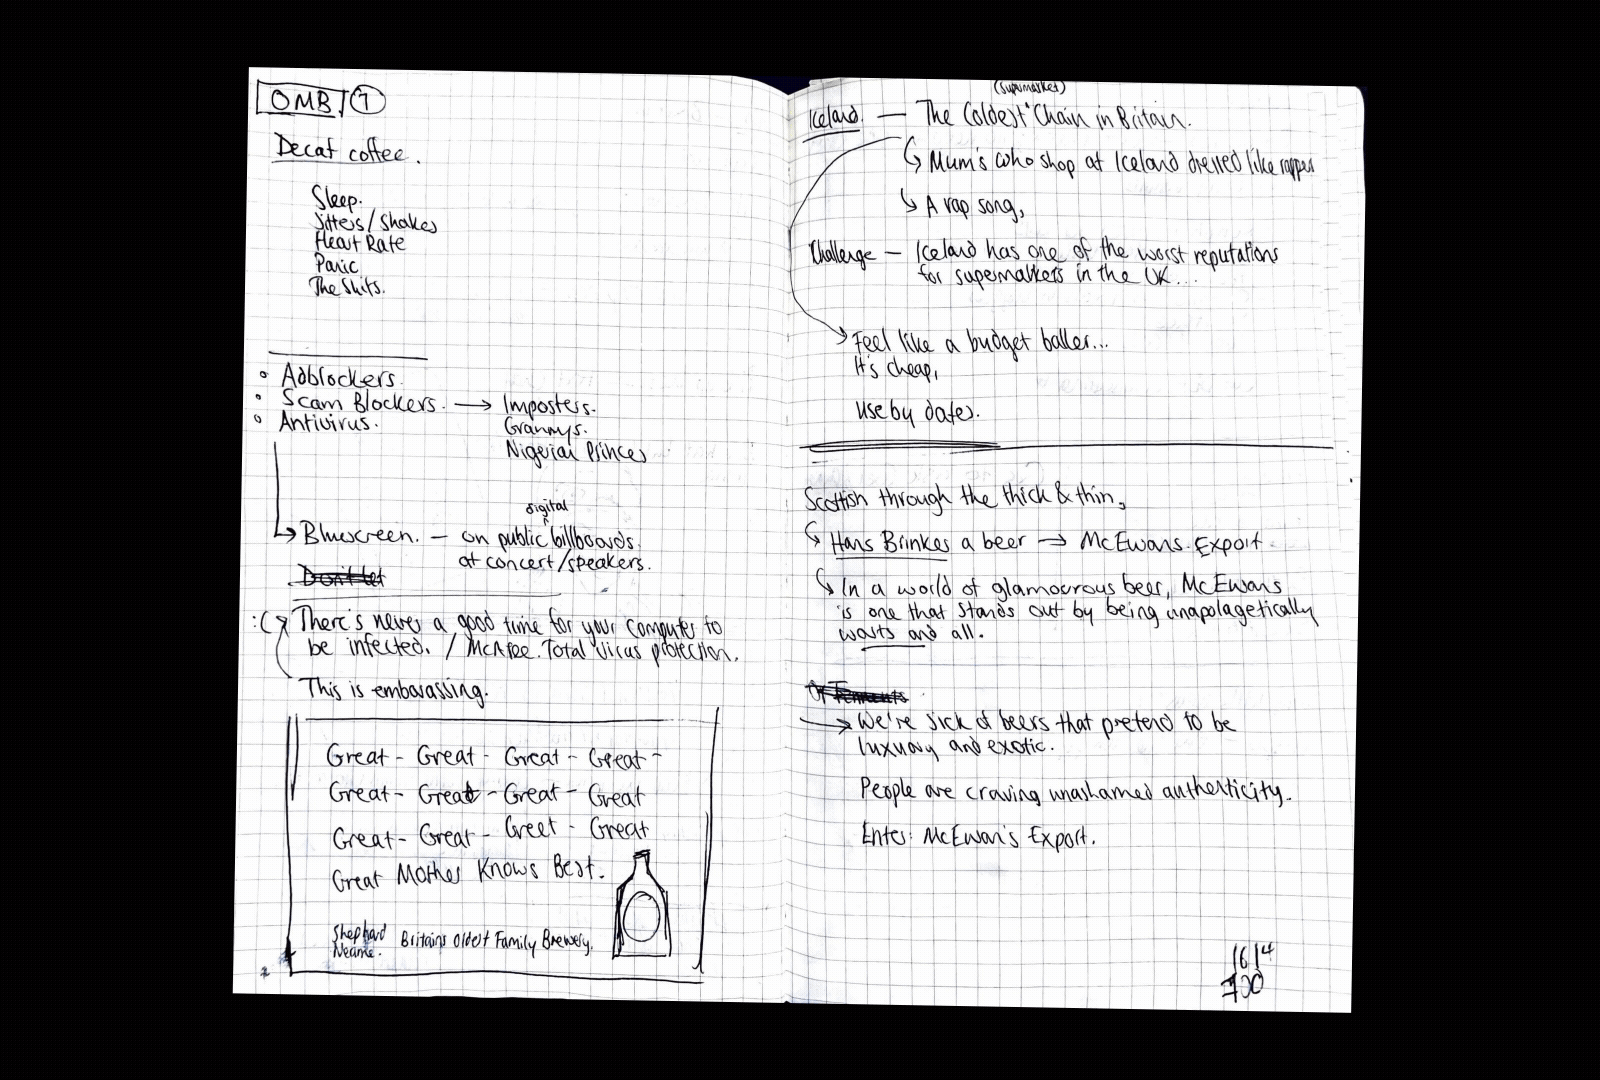 OMB 7
Decaf coffee.
Sleep.
Jitters/Shakes
Heart Rate
Panic
The Shits.
Adblockers.
Scam Blockers. → Imposters.
Antivirus.
Grannys.
Nigerian Princes
digital
Bluescreen. – on public billboards.
at concert/speakers.
Don't let
:( There's never a good time for your computer to
be infected. / McAfee. Total Virus protection.
This is embarassing.
Great - Great - Great - Great -
Great - Great - Great - Great
Great - Great - Great - Great
Great Mother Knows Best.
Shephard
Neame. Britains Oldest Family Brewery.
(supermarket)
Iceland. — The Coldest Chain in Britain.
Mum's who shop at Iceland dressed like rappers
A rap song,
Challenge – Iceland has one of the worst reputations
for supermarkets in the UK...
Feel like a budget baller...
It's cheap,
use by dates.
Scottish through the thick & thin,
Hans Brinker a beer → McEwans Export.
In a world of glamourous beer, McEwans
is one that stands out by being unapolagetically
warts and all.
Or Tennents
We're sick of beers that pretend to be
luxuary and exotic.
People are craving unashamed authenticity.
Enter: McEwan's Export.
1614
700